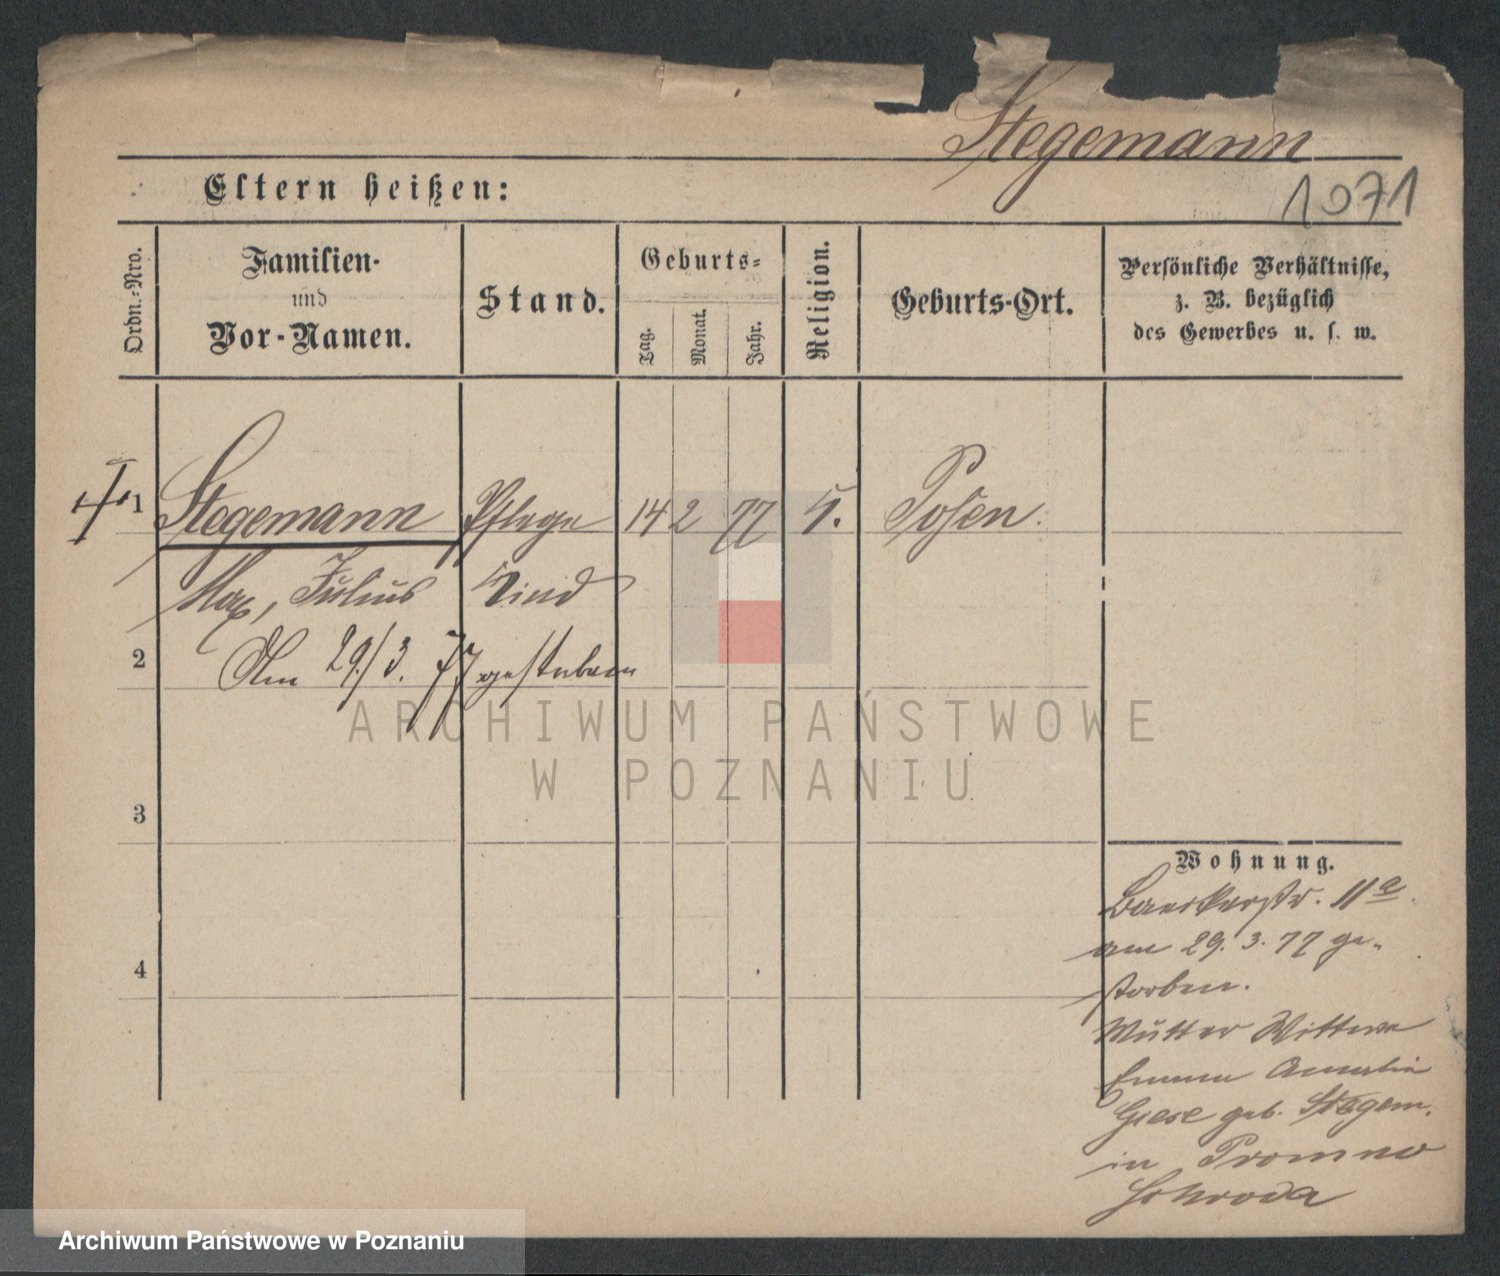 Stegemann
1071
Eltern heißen:
Ordn.-Nro.
Familien-
und
Vor-Namen.
Stand.
Geburts-
Tag.
Monat.
Jahr.
Religion.
Geburts-Ort.
Persönliche Verhältnisse,
z. B. bezüglich
des Gewerbes u. s. w.
1 Stegemann Pflege 14 2 77 Posen.
Max, Julius Kind
2 Am 29/3. 77 gestorben
ARCHIWUM PAŃSTWOWE
W POZNANIU
3
Wohnung.
Baeckerstr. 11a
am 29. 3. 77 ge-
storben.
4
Mutter Wittwe
Emma Amalie
Giese geb. Stegem.
in Promno
Schroda
Archiwum Państwowe w Poznaniu